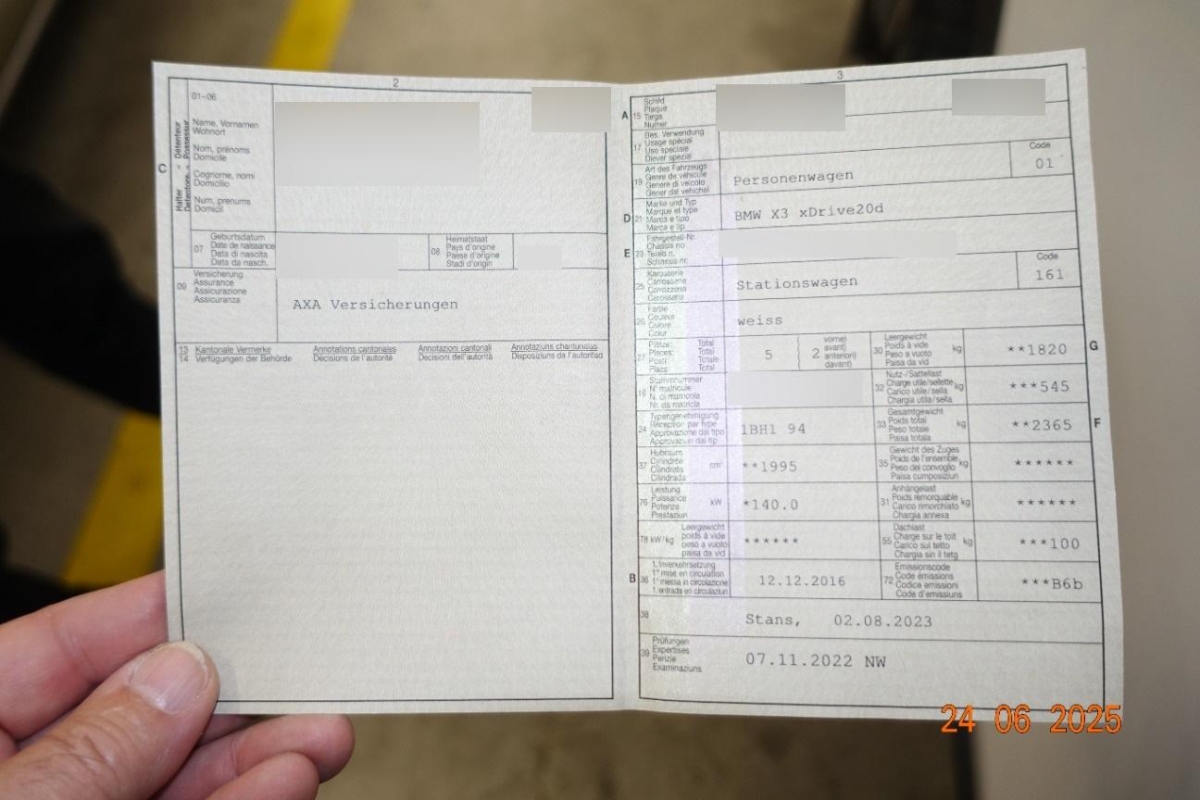 2
01-06
Halter - Détenteur
Detentore - Possessur
C
Name, Vornamen
Wohnort
Nom, prénoms
Domicile
Cognome, nomi
Domicilio
Num, prenums
Domicil
07
Geburtsdatum
Date de naissance
Data di nascita
Data da nasch.
08
Heimatstaat
Pays d'origine
Paese d'origine
Stadi d'origin
09
Versicherung
Assurance
Assicurazione
Assicuranza
AXA Versicherungen
13 Kantonale Vermerke Annotations cantonales Annotazioni cantonali Annotaziuns chantunalas
14 Verfügungen der Behörde Décisions de l'autorité Decisioni dell'autorità Disposiziuns da l'autoritad
3
A 15
Schild
Plaque
Targa
Numer
17
Bes. Verwendung
Usage spécial
Uso speciale
Diever spezial
19
Art des Fahrzeugs
Genre de véhicule
Genere di veicolo
Gener dal vehichel
Personenwagen
Code
01
D 21
Marke und Typ
Marque et type
Marca e tipo
Marca e tip
BMW X3 xDrive20d
E 23
Fahrgestell-Nr.
Chassis no
Telaio n.
Schassis nr.
25
Karosserie
Carrosserie
Carrozzeria
Carossaria
Stationswagen
Code
161
26
Farbe
Couleur
Colore
Colur
weiss
27
Plätze: Total
Places: Total
Posti: Totale
Plazs: Total
5
2
vorne)
avant)
anteriori)
davant)
30
Leergewicht
Poids à vide
Peso a vuoto
Paisa da vid
kg
**1820
G
18
Stammnummer
N° matricule
N. di matricola
Nr. da matricla
32
Nutz-/Sattellast
Charge utile/sellette
Carico utile/sella
Chargia utila/sella
kg
***545
24
Typengenehmigung
Réception par type
Approvazione del tipo
Approvaziun dal tip
1BH1 94
33
Gesamtgewicht
Poids total
Peso totale
Paisa totala
kg
**2365
F
37
Hubraum
Cylindrée
Cilindrata
Cilindrada
cm³
**1995
35
Gewicht des Zuges
Poids de l'ensemble
Peso del convoglio
Paisa cumposiziun
kg
******
76
Leistung
Puissance
Potenza
Prestaziun
kW
*140.0
31
Anhängelast
Poids remorquable
Carico rimorchiato
Chargia annexa
kg
******
78 kW/kg
Leergewicht
poids à vide
peso a vuoto
paisa da vid
******
55
Dachlast
Charge sur le toit
Carico sul tetto
Chargia sin il tetg
kg
***100
B 36
1. Inverkehrsetzung
1re mise en circulation
1a messa in circolazione
1. entrada en circulaziun
12.12.2016
72
Emissionscode
Code émissions
Codice emissioni
Code d'emissiuns
***B6b
38
Stans, 02.08.2023
39
Prüfungen
Expertises
Perizie
Examinaziuns
07.11.2022 NW
24 06 2025